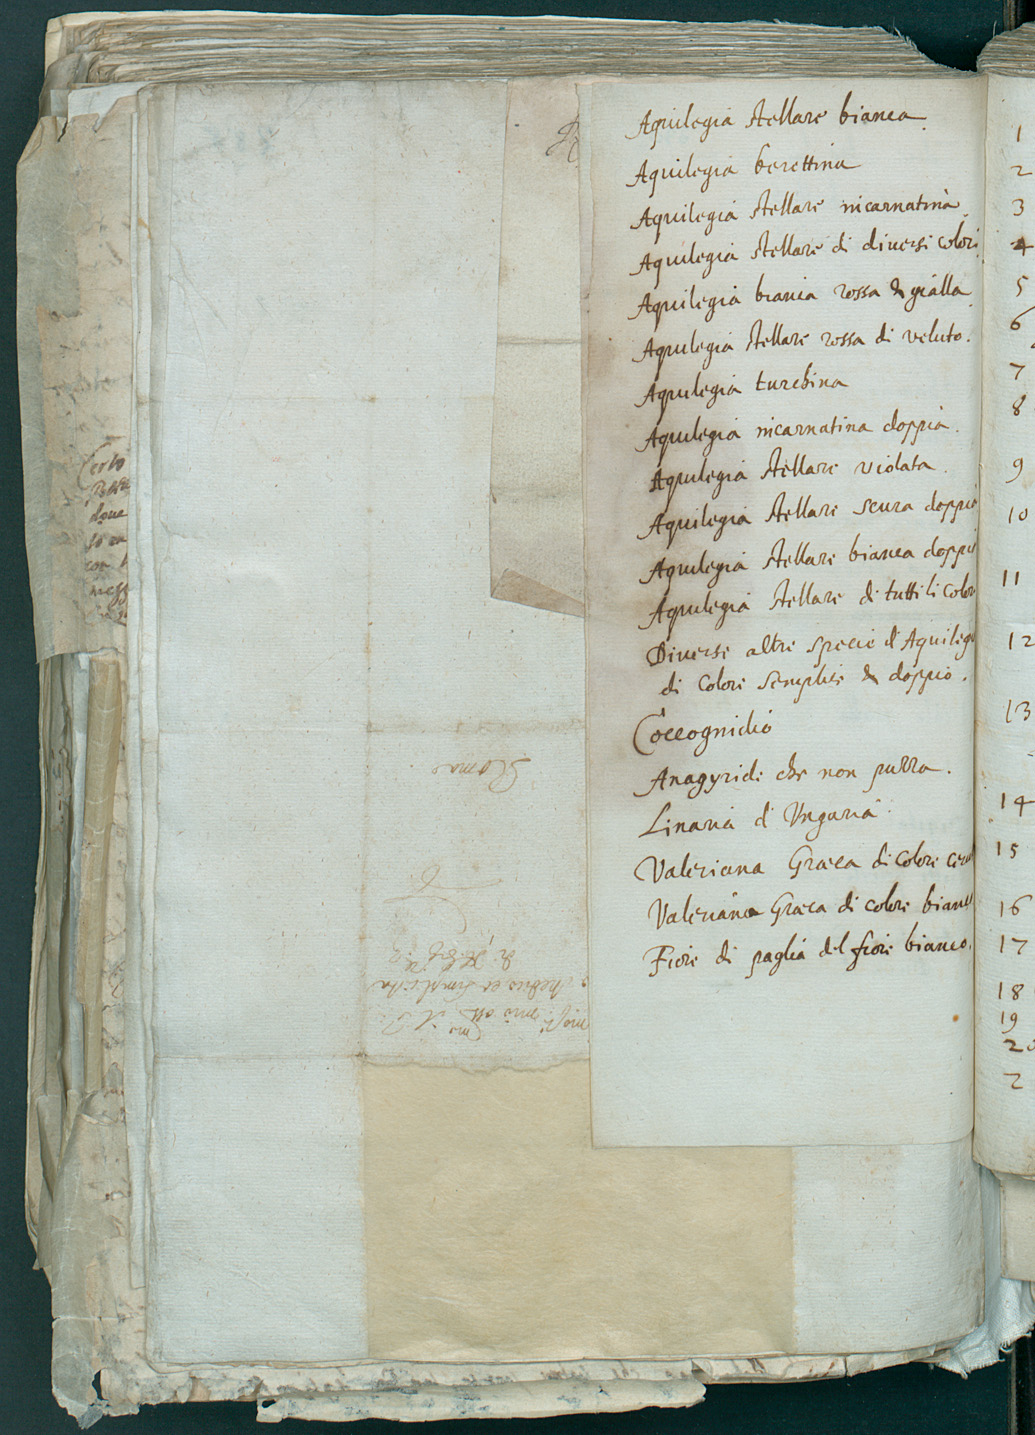 Aquilegia stellare bianca.
Aquilegia berettina
Aquilegia stellare incarnatina.
Aquilegia stellare di diversi colori
Aquilegia biania rossa & gialla
Aquilegia stellare rossa di veluto.
Aquilegia turchina
Aquilegia incarnatina doppia.
Aquilegia stellare violata.
Aquilegia stellare scura doppia
Aquilegia stellare bianca doppia
Aquilegia stellare di tutti li color
Diverse altre specie d'Aquilegi
di colore semplice & doppio.
Coccognidio
Anagyridi che non puzza.
Linaria d'Ungaria
Valeriana Græca di colore ceru
Valeriana Græca di colore bianc
Fiore di paglia del fiore bianco.
1
2
3
4
5
6
7
8
9
10
11
12
13
14
15
16
17
18
19
20
2
Certo
dove
con
Roma